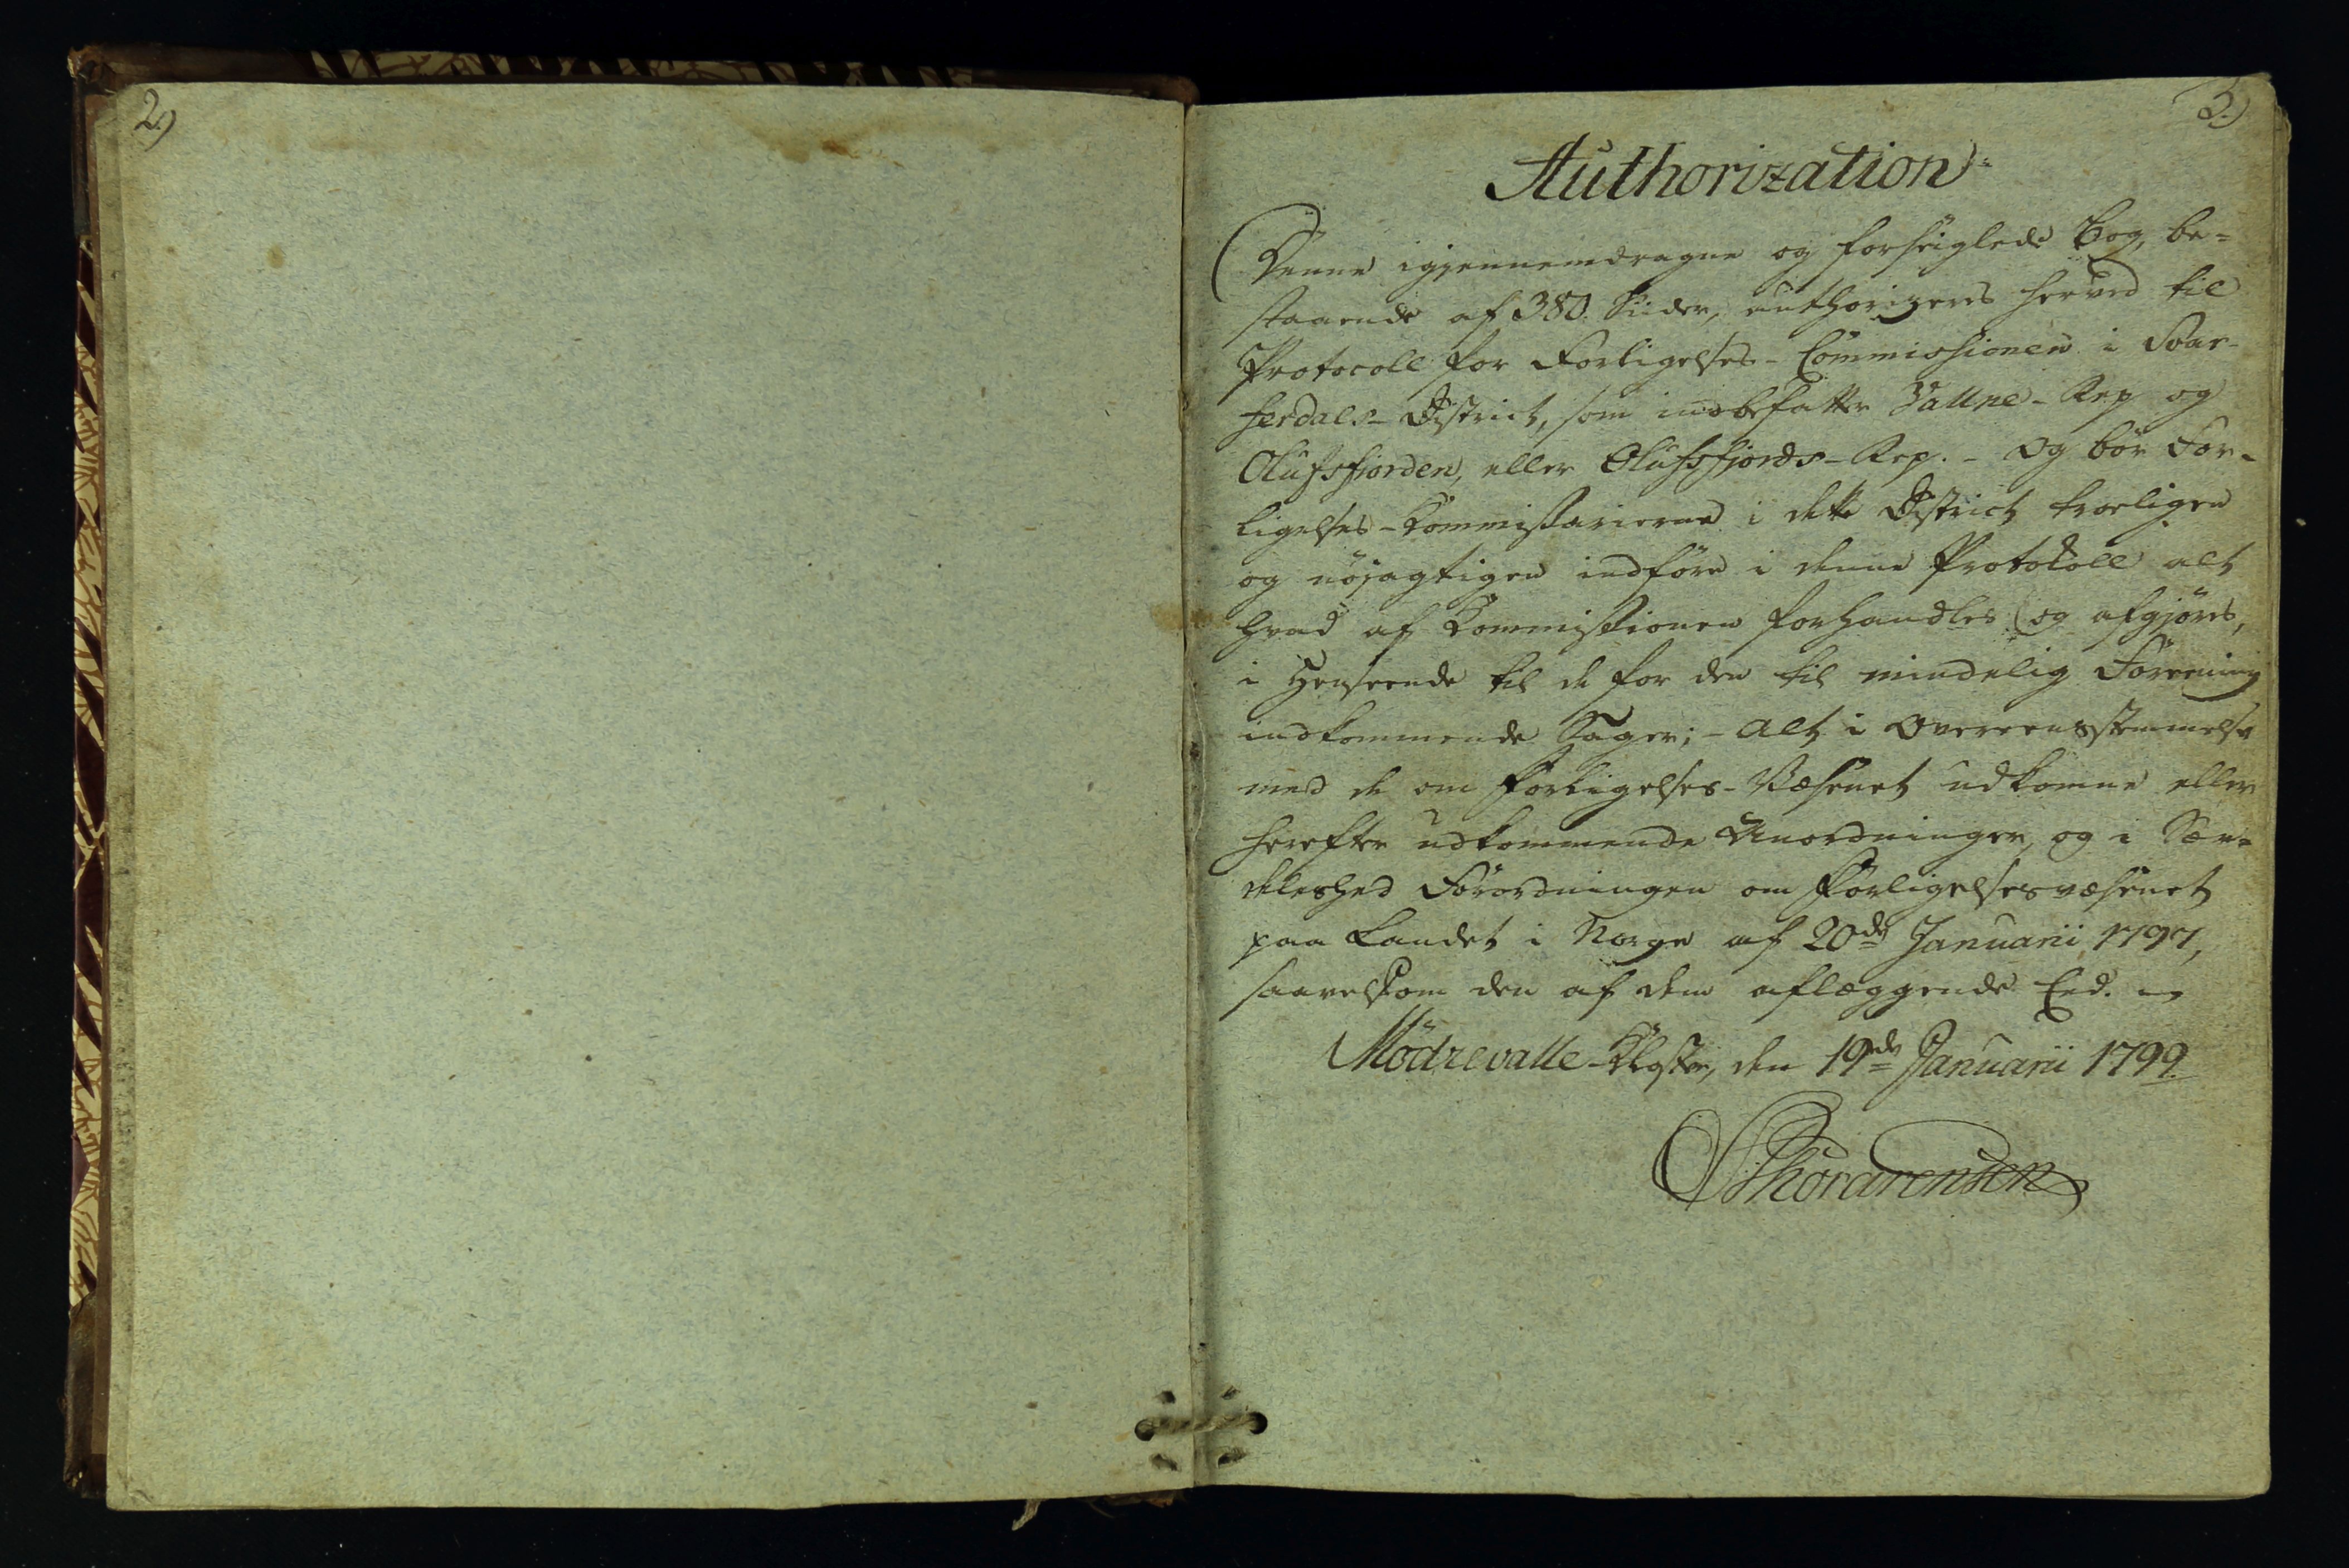 2.)
3.)
Authorization
Denne igjennemdragne og forseiglede Bog, be=
staaende af 380. Siider, authorizeres herved til
Protocoll for Forligelses-Commissionen i Svar-
ferdals-District, som indbefatter Vallne-Rep og
Olufsfjorden, eller Olufsfjords-Rep. - Og bör For-
ligelses-Kommissarierne i dette District troeligen
og nöjagtigen indföre i denne Protokoll alt
hvad af Kommissionen forhandles og afgjöres,
i Henseende til de for den til mindelig Forening
indkommende Sager; - Alt i Overeensstemmelse
med de om Forligelses-Væsenet udkomne eller
herefter udkommende Anordninger, og i Sær=
deleshed Forordningen om Forligelsesvæsenet
paa Landet i Norge af 20de Januarii 1797,
saavelsom den af dem aflæggende Eed.
Mödrevalle-Kloster, den 19de Januarii 1799
SThorarensen